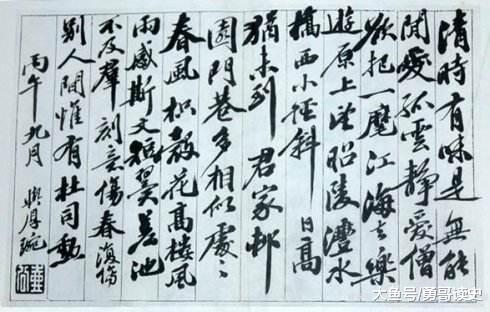 清時有味是無能
閒愛孤雲靜愛僧
欲把一麾江海去樂
遊原上望昭陵灃水
橋西小徑斜 日高
猶未到 君家邨
園門巷多相似處々
春風枳殼花高樓風
雨感斯文短翼差池
不及羣刻意傷春復傷
別人間惟有杜司勳
丙午九月
大鱼号/勇哥读史